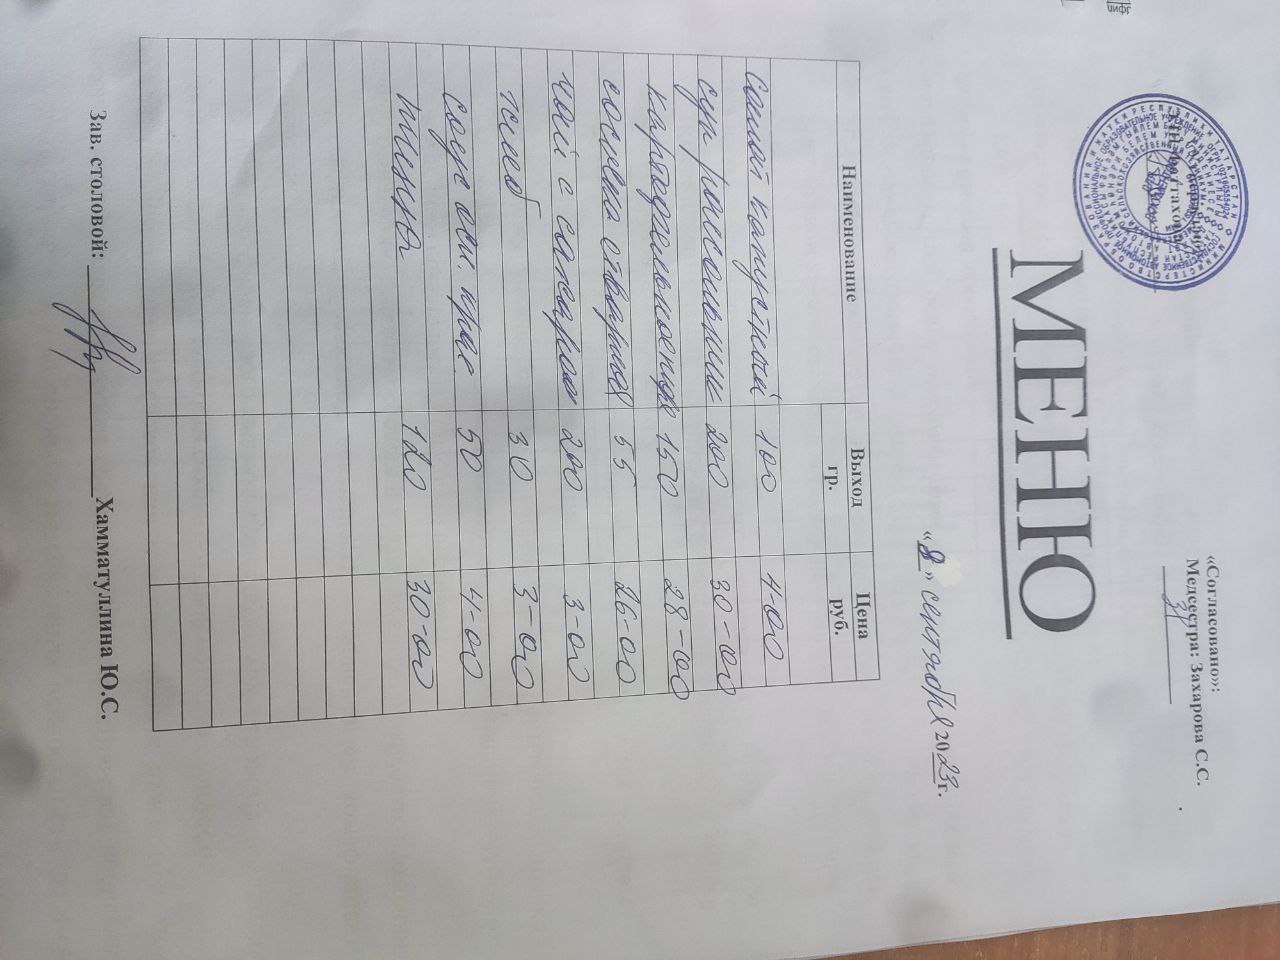 «Согласовано»:
Медсестра: Захарова С.С.
МЕНЮ
«8» сентября 2023 г.
Наименование Выход гр. Цена руб.
Салат капустный 100 4-00
суп рассольник 200 30-00
картофельное пюре 150 28-00
сосиска отварная 55 26-00
чай с сахаром 200 3-00
хлеб 30 3-00
соус осн. крас. 50 4-00
пицца 120 30-00
Зав. столовой: Хамматуллина Ю.С.